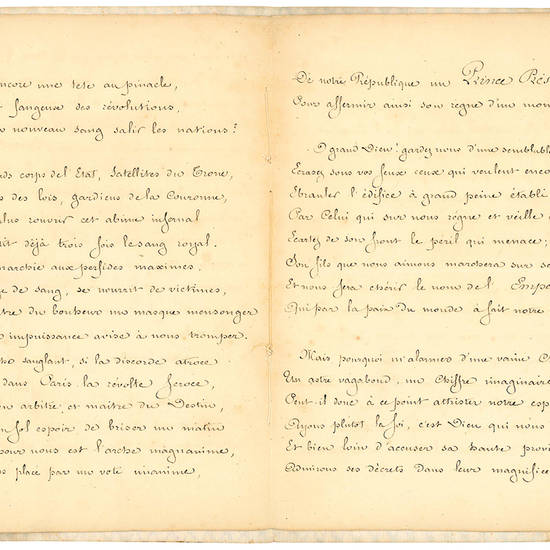 encore une tête au pinacle,
fangeux des révolutions,
nouveau sang salir les nations?
corps de l'Etat, Satellites du Trone,
des lois, gardiens de la Couronne,
rouvrir cet abime infernal
déjà trois fois le sang royal.
aux perfides maximes.
de sang, se nourrit de victimes,
du bonheur un masque mensonger
impuissance avise à nous tromper.
sanglant, si la discorde atroce
dans Paris la révolte feroce,
arbitre et maitre du Destin,
fol espoir de briser un matin
pour nous est l'arche magnanime,
place par un vote unanime,
De notre République un Prince Prés
Pour affermir ainsi son regne d'un mom
O grand Dieu! gardez nous d'une semblabl
Ecrasez sous vos feux ceux qui veulent enco
Ebranler l'édifice à grand peine établi
Par Celui qui sur nous régne et veille
Ecartez de son front le peril qui menace;
Son fils que nous aimons marchera sur s
Et nous fera chérir le nom de l'Empe
Qui par la paix du monde à fait notre
Mais pourquoi m'alarmer d'une vaine
Un astre vagabond, un Chiffre imaginaire
Peut-il donc à ce point attrister notre esp
Ayons plutot la foi, c'est Dieu qui nous
Et bien loin d'accuser sa haute provi
Admirons ses décrets dans leur magnifice